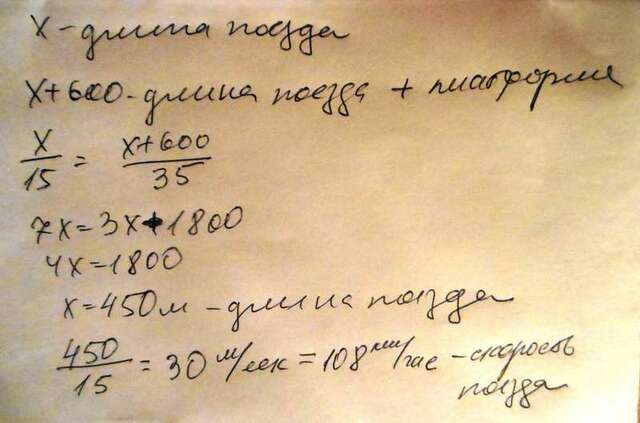 x - длина поезда
x+600 - длина поезда + платформы
x/15 = x+600/35
7x=3x+1800
4x=1800
x=450м - длина поезда
450/15 = 30 м/сек = 108 км/час - скорость
поезда